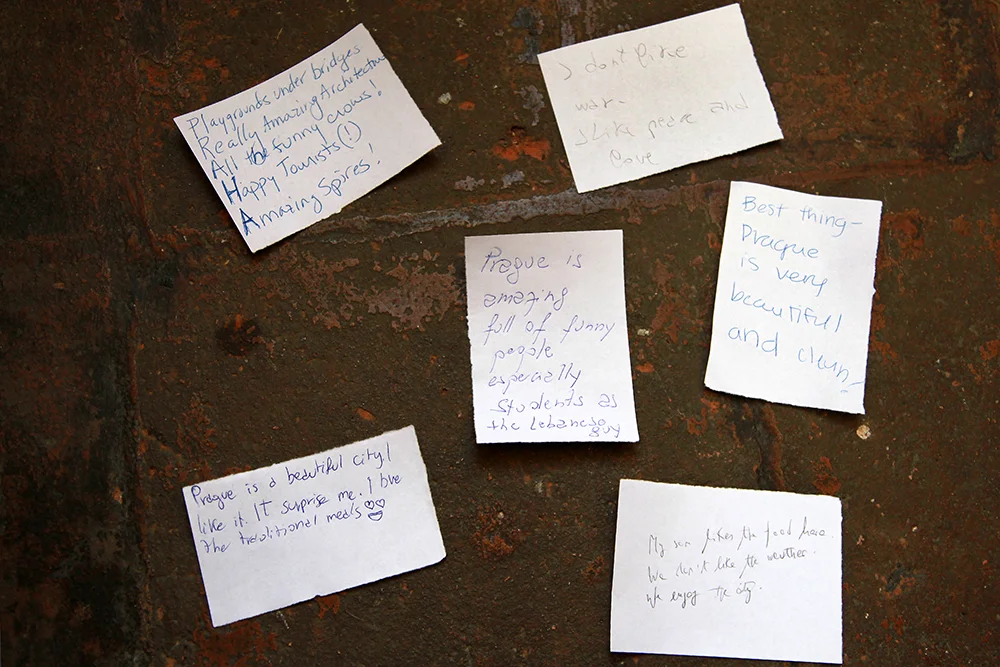 Playgrounds under bridges
Really Amazing Architecture
All the funny crows!
Happy Tourists (!)
Amazing Spires!
I dont like
war.
I like peace and
love
Best thing-
Prague
is very
beautifull
and clean!
Prague is
amazing
full of funny
people
especially
students as
the lebanese
guy
Prague is a beautiful city!
like it. It surprise me. I love
the traditional meals
My son likes the food here.
We don't like the weather.
We enjoy the city.